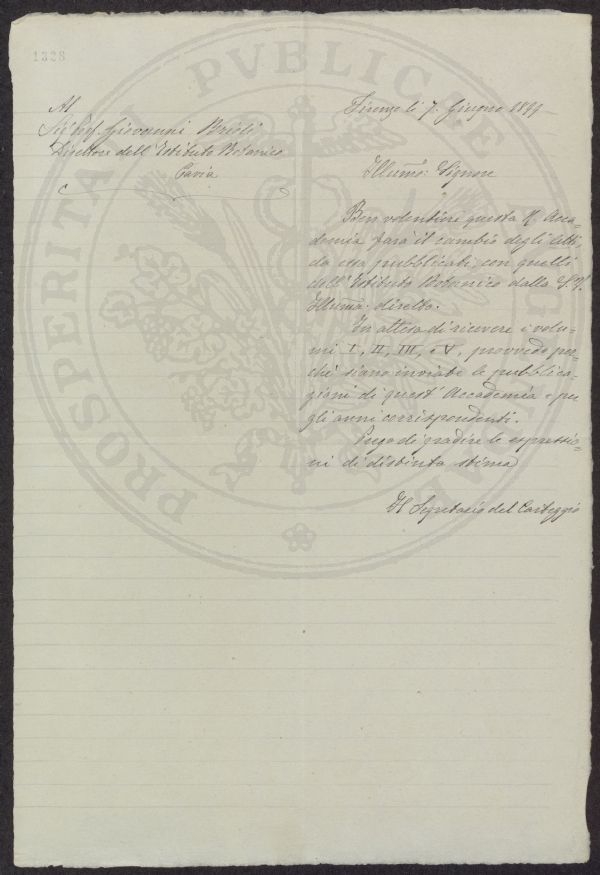 1328
PROSPERITATI PUBLICAE AUGENDAE
Al
Sig Prof. Giovanni Briosi
Direttore dell'Istituto Botanico
Pavia
Firenze li 7. Giugno 1899
Illumo: Signore
Ben volentieri questa R. Acca-
demia farà il cambio degli Atti,
da essa pubblicati, con quelli
dell'Istituto Botanico dalla S. V.
Illuma. diretto.
In attesa di ricevere i volu-
mi I, II, III, e V, provvedo per-
chè siano inviate le pubblica-
zioni di quest'Accademia per
gli anni corrispondenti.
Prego di gradire le espressio-
ni di distinta stima
Il Segretario del Carteggio